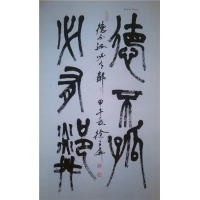 德不孤
德不孤必有鄰 甲午
必有鄰